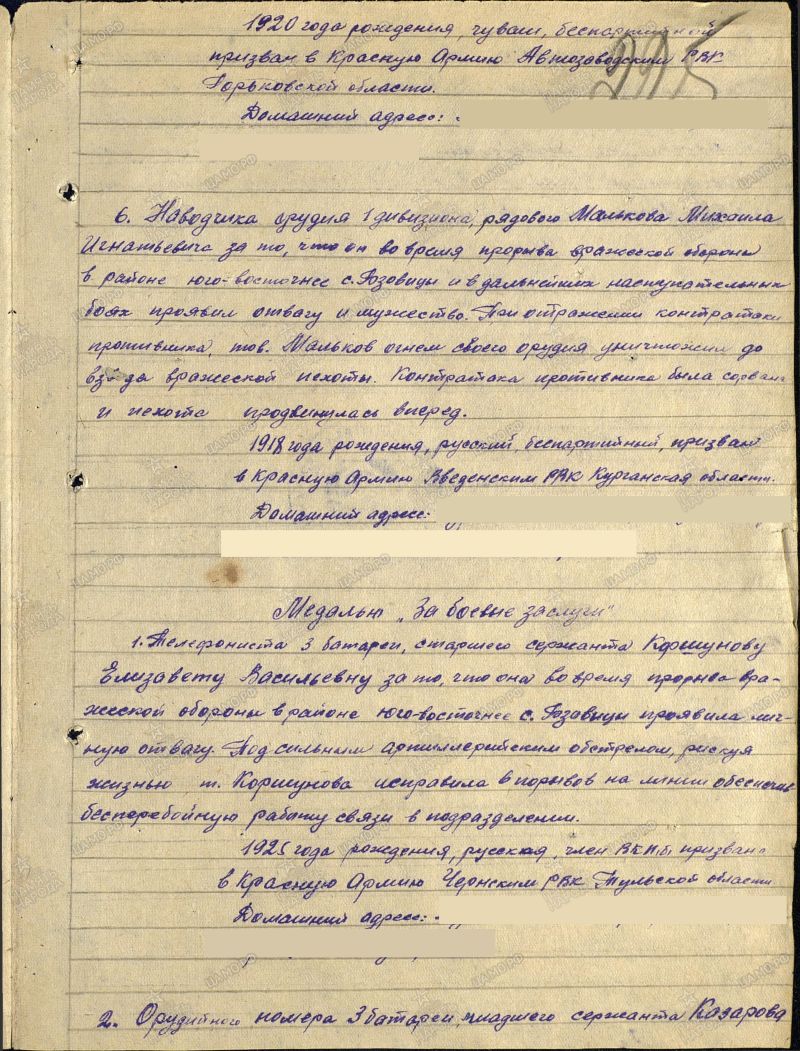 1920 года рождения, чуваш, беспартийной
призван в Красную Армию Автозаводским РВК
Горьковской области.
Домашний адрес:
6. Наводчика орудия 1 дивизиона, рядового Малькова Михаила
Игнатьевича за то, что он во время прорыва вражеской обороны
в районе юго-восточнее с. Розовицы и в дальнейших наступательных
боях проявил отвагу и мужество. При отражении контратаки
противника, тов. Мальков огнем своего орудия уничтожил до
вз-да вражеской пехоты. Контратака противника была сорвана
и пехота продвинулась вперед.
1918 года рождения, русский, беспартийный, призван
в Красную Армию Введенским РВК Курганская области.
Домашний адрес:
Медалью „За боевые заслуги"
1. Телефониста 3 батареи, старшего сержанта Коршунову
Елизавету Васильевну за то, что она во время прорыва вра-
жеской обороны в районе юго-восточнее с. Розавицы проявила лич-
ную отвагу. Под сильным артиллерийским обстрелом, рискуя
жизнью т. Коршунова исправила 8 порывов на линии обеспечив
бесперебойную работу связи в подразделении.
1925 года рождения, русская, член ВКПб призвана
в Красную Армию Чернским РВК Тульской области
Домашний адрес:
2. Орудийного номера 3 батареи, младшего сержанта Казарова